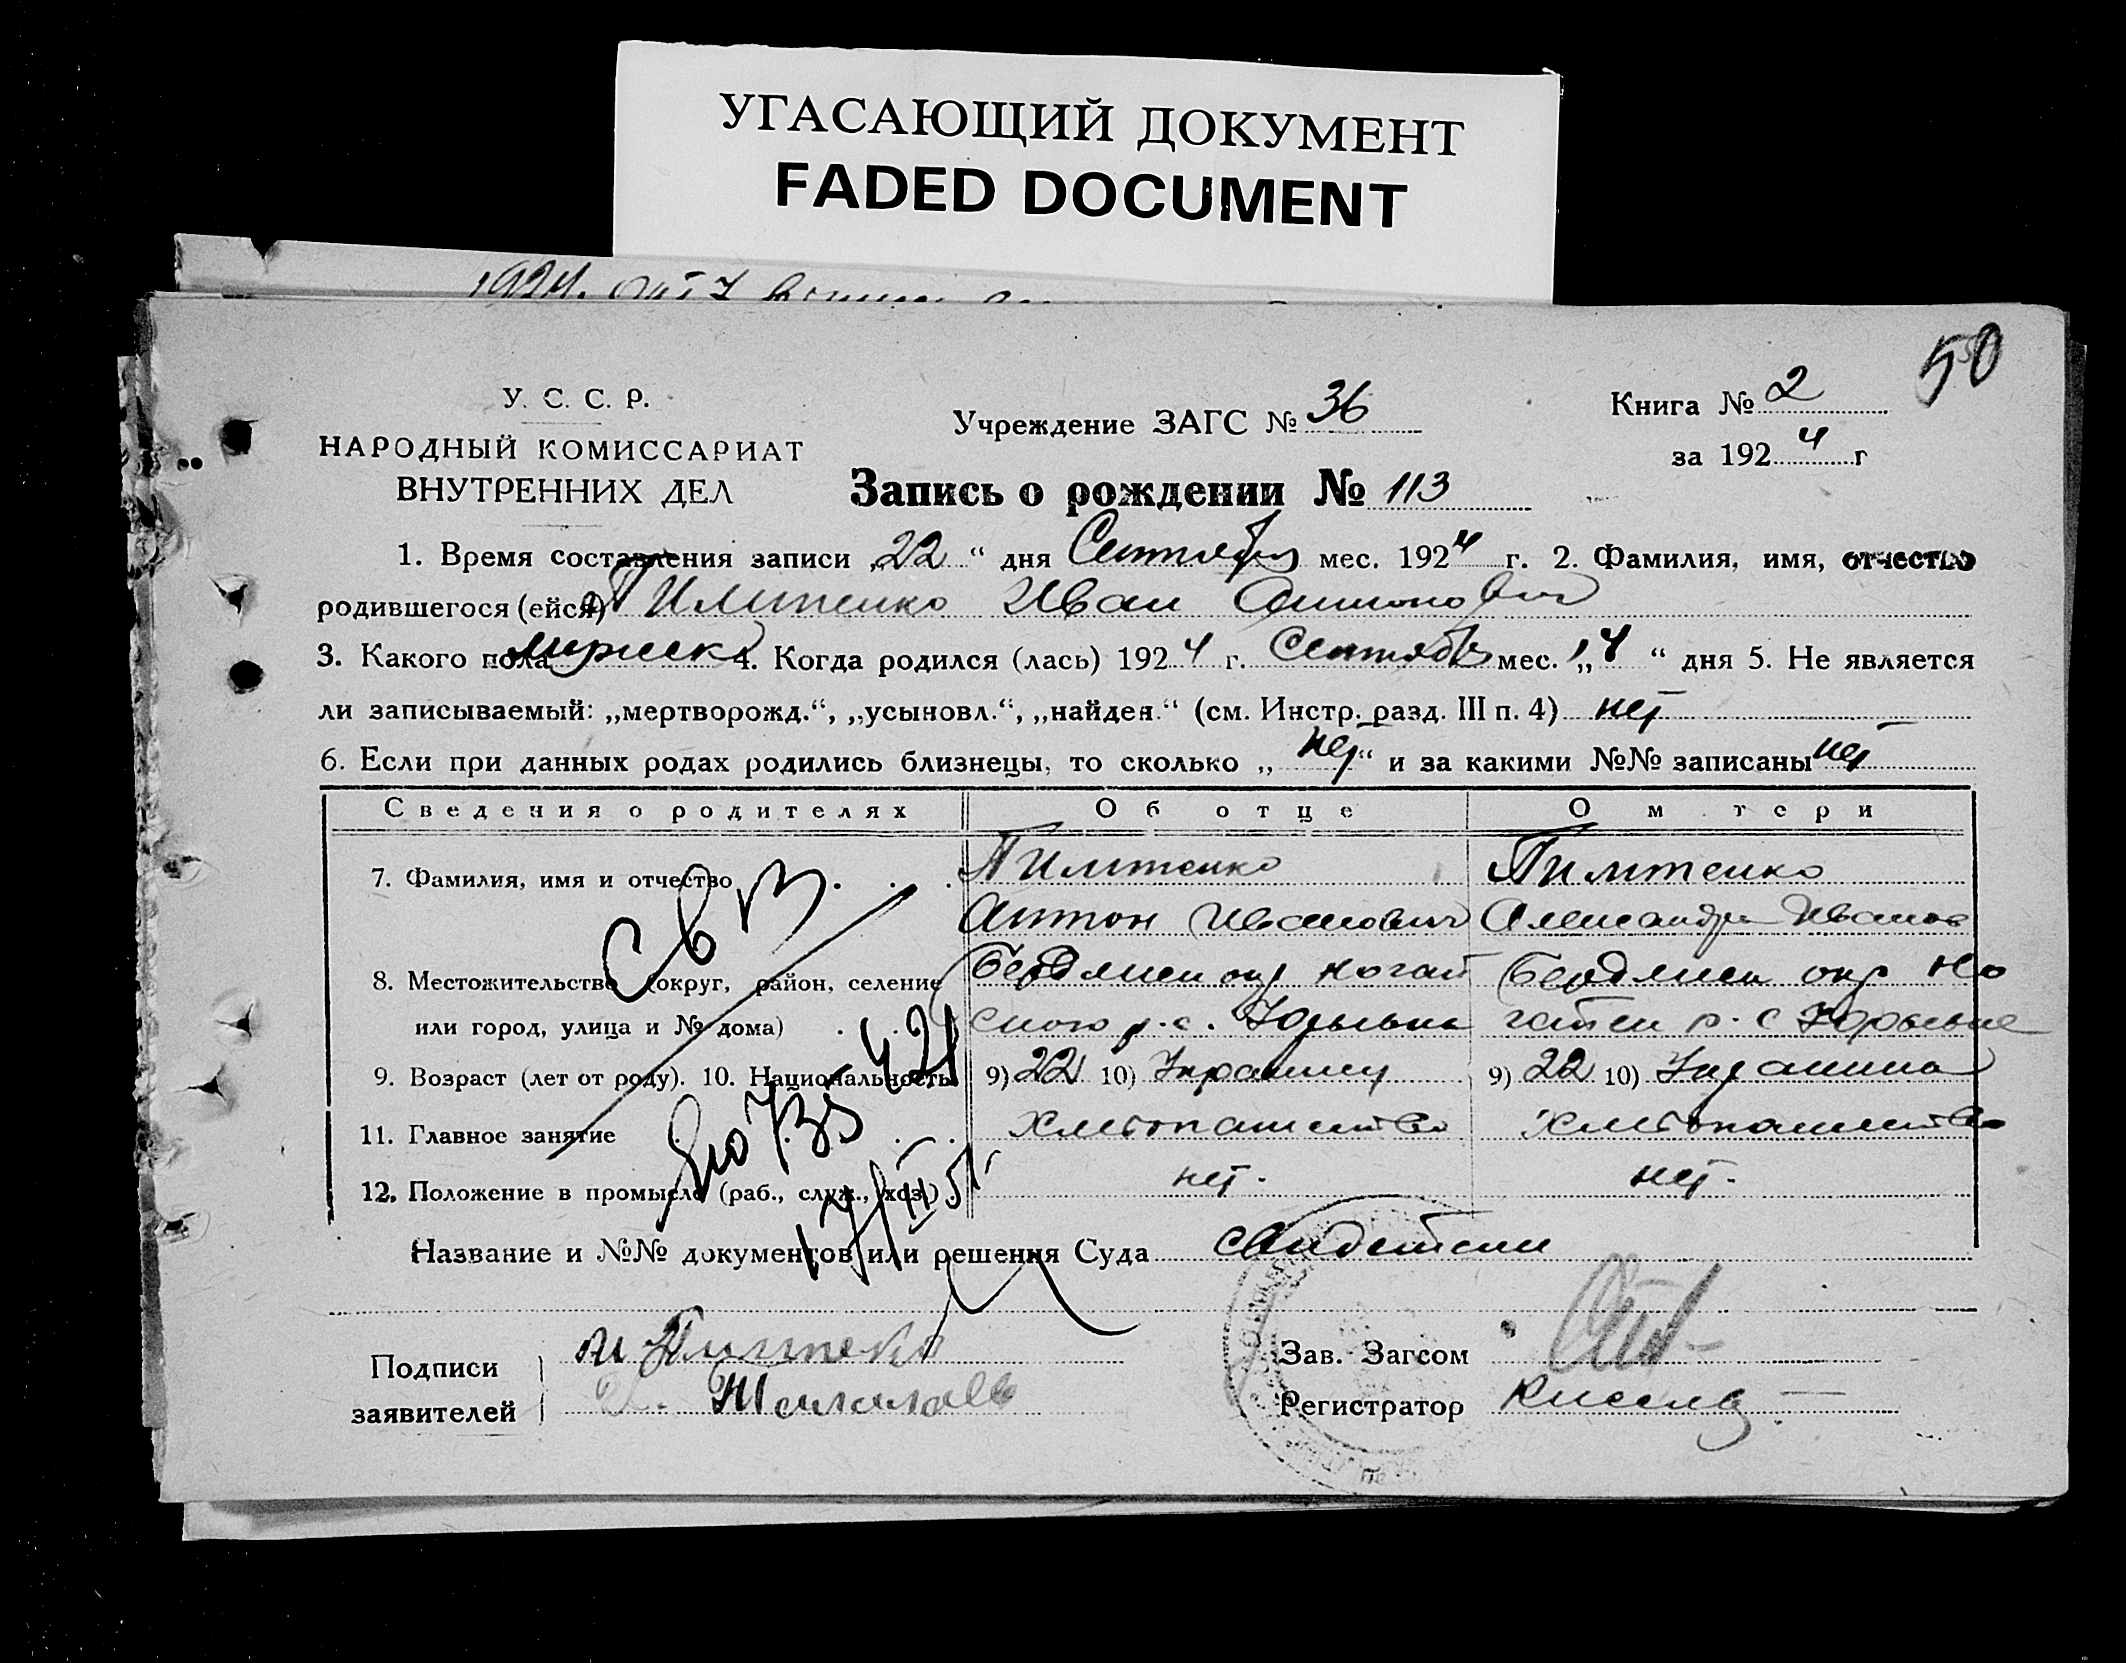 УГАСАЮЩИЙ ДОКУМЕНТ
FADED DOCUMENT
1924.
50
У. С. С. Р.
НАРОДНЫЙ КОМИССАРИАТ
ВНУТРЕННИХ ДЕЛ
Учреждение ЗАГС № 36
Книга № 2
за 1924 г
Запись о рождении № 113
1. Время составления записи „22“ дня Сентября мес. 1924 г. 2. Фамилия, имя, отчество
родившегося (ейся) Иван Антонович
3. Какого пола мужска 4. Когда родился (лась) 1924 г. Сентября мес. „4“ дня 5. Не является
ли записываемый: „мертворожд.“, „усыновл.“, „найден.“ (см. Инстр. разд. III п. 4) нет
6. Если при данных родах родились близнецы, то сколько „нет“ и за какими №№ записаны нет
Сведения о родителях Об отце О м тери
7. Фамилия, имя и отчество
Антон Иванович Александра Иванов
8. Местожительство (округ, район, селение Бердянск окр Ногай Бердянск окр Но
или город, улица и № дома) ского р. с. Юрьевка гайск р. с Юрьевке
9. Возраст (лет от роду). 10. Национальность 9) 22 10) Украинец 9) 22 10) Украинка
11. Главное занятие Хлебопашество Хлебопашество
12. Положение в промысле (раб., служ., хоз.) нет. нет.
Св
17/III 51
Название и №№ документов или решения Суда свидетели
Подписи
заявителей
Зав. Загсом
Регистратор